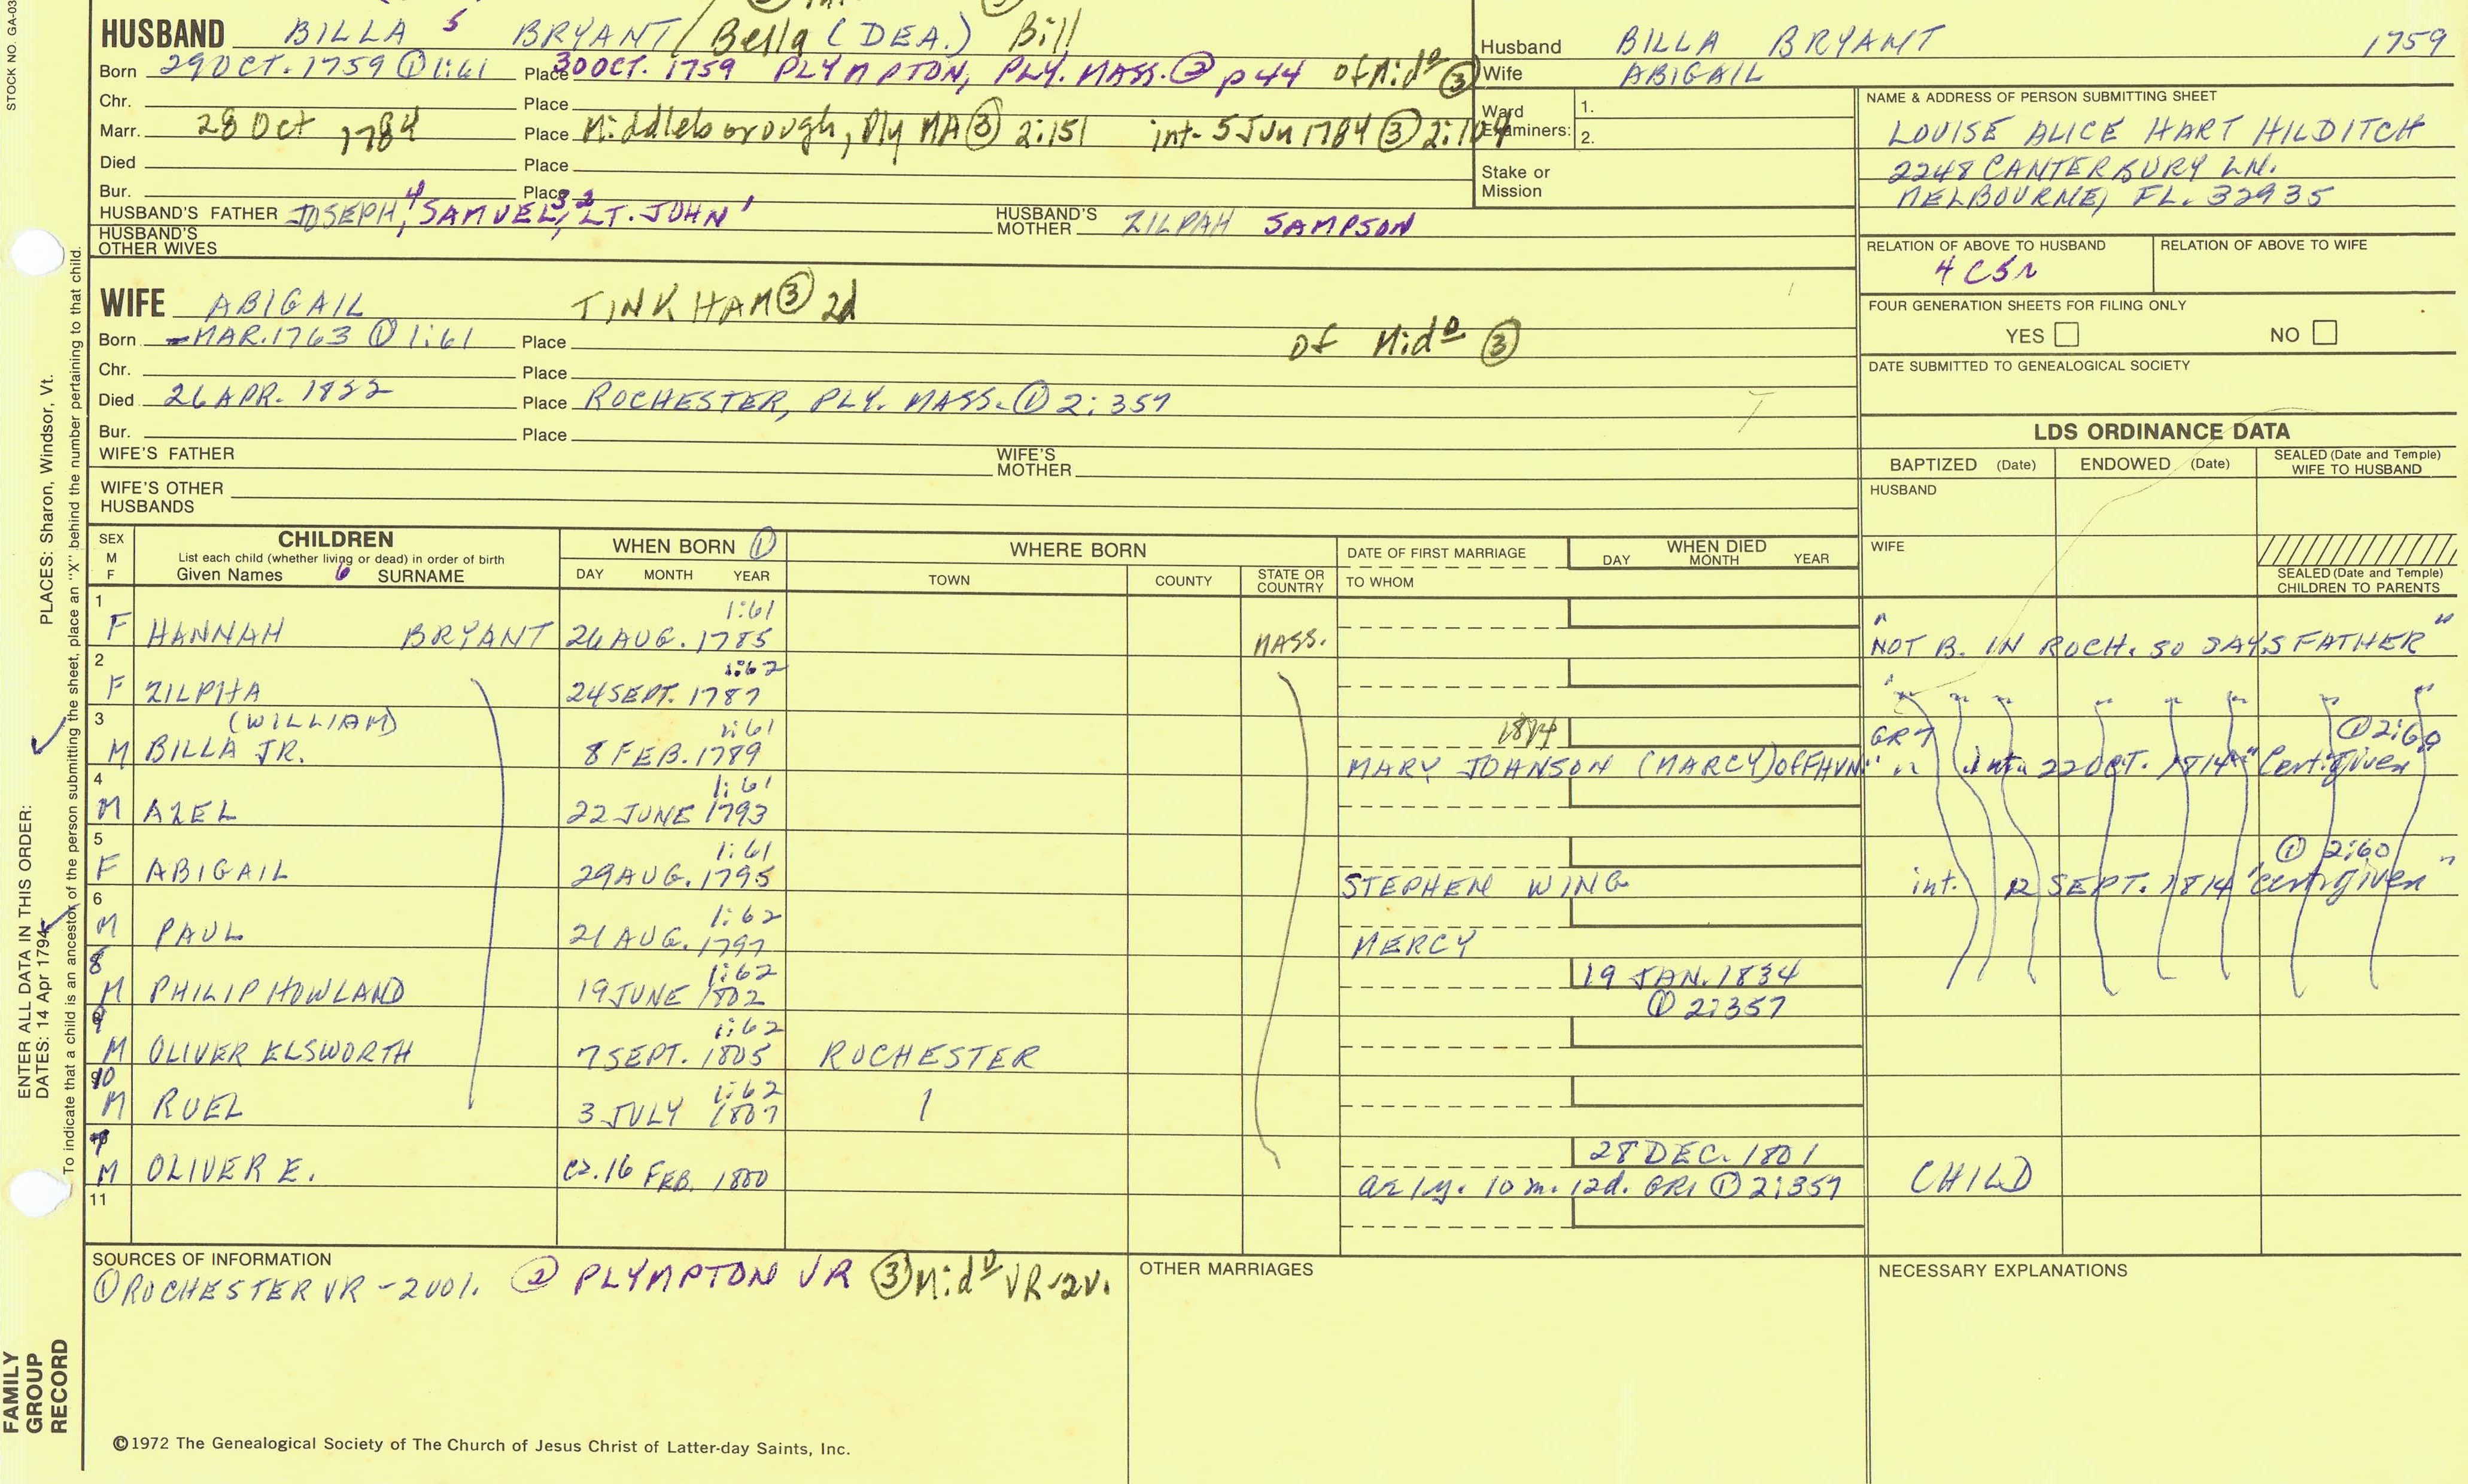 STOCK NO. GA-03
HUSBAND BILLA 5 BRYANT / Bella (DEA.) Bill
Born 29 OCT. 1759 ① 1:61 Place 30 OCT. 1759 PLYMPTON, PLY. MASS. ② p 44 of Mido ③
Chr. Place
Marr. 28 Oct 1784 Place Middleborough, Ply MA ③ 2:151 int- 5 Jun 1784 ③ 2:109
Died Place
Bur. Place
HUSBAND'S FATHER JOSEPH,4 SAMUEL,3 2 LT. JOHN1 HUSBAND'S MOTHER ZILPAH SAMPSON
HUSBAND'S OTHER WIVES
Husband BILLA BRYANT 1759
Wife ABIGAIL
Ward Examiners: 1.
2.
Stake or Mission
NAME & ADDRESS OF PERSON SUBMITTING SHEET
LOUISE ALICE HART HILDITCH
2248 CANTERBURY LN.
MELBOURNE, FL. 32935
RELATION OF ABOVE TO HUSBAND RELATION OF ABOVE TO WIFE
4 C 5 r
FOUR GENERATION SHEETS FOR FILING ONLY
YES NO
DATE SUBMITTED TO GENEALOGICAL SOCIETY
WIFE ABIGAIL TINKHAM ③ 2d
Born - MAR. 1763 ① 1:61 Place of Mido ③
Chr. Place
Died 26 APR. 1832 Place ROCHESTER, PLY. MASS. ① 2:357
Bur. Place
WIFE'S FATHER WIFE'S MOTHER
WIFE'S OTHER HUSBANDS
LDS ORDINANCE DATA
BAPTIZED (Date) ENDOWED (Date) SEALED (Date and Temple) WIFE TO HUSBAND
HUSBAND
WIFE
SEALED (Date and Temple) CHILDREN TO PARENTS
SEX M F CHILDREN List each child (whether living or dead) in order of birth Given Names 6 SURNAME
WHEN BORN ① DAY MONTH YEAR
WHERE BORN TOWN COUNTY STATE OR COUNTRY
DATE OF FIRST MARRIAGE TO WHOM
WHEN DIED DAY MONTH YEAR
1 1:61
F HANNAH BRYANT 26 AUG. 1785 MASS. "NOT B. IN ROCH. SO SAYS FATHER"
2 1:62
F ZILPHA 24 SEPT. 1787
3 (WILLIAM) 1:61 1814 ① 2:60
M BILLA JR. 8 FEB. 1789 MARY JOHNSON (MARCY) OF FHVN" int. 22 OCT. 1814 "Cert. given
4 1:61
M AZEL 22 JUNE 1793
5 1:61 ① 2:60
F ABIGAIL 29 AUG. 1795 STEPHEN WING int. 12 SEPT. 1814 "cert. given"
6 1:62
M PAUL 21 AUG. 1797 MERCY
8 1:62 19 JAN. 1834
M PHILIP HOWLAND 19 JUNE 1802 ① 2:357
9 1:62
M OLIVER ELSWORTH 7 SEPT. 1805 ROCHESTER
10 1:62
M RUEL 3 JULY 1807
7 28 DEC. 1801
M OLIVER E. ca. 16 FEB. 1800 ae 1y. 10 m. 12d. GR1 ① 2:357 CHILD
11
SOURCES OF INFORMATION
① ROCHESTER VR - 2 vol. ② PLYMPTON VR ③ Mido VR - 2v.
OTHER MARRIAGES
NECESSARY EXPLANATIONS
©1972 The Genealogical Society of The Church of Jesus Christ of Latter-day Saints, Inc.
FAMILY GROUP RECORD
ENTER ALL DATA IN THIS ORDER:
DATES: 14 Apr 1794
PLACES: Sharon, Windsor, Vt.
To indicate that a child is an ancestor of the person submitting the sheet, place an "X" behind the number pertaining to that child.